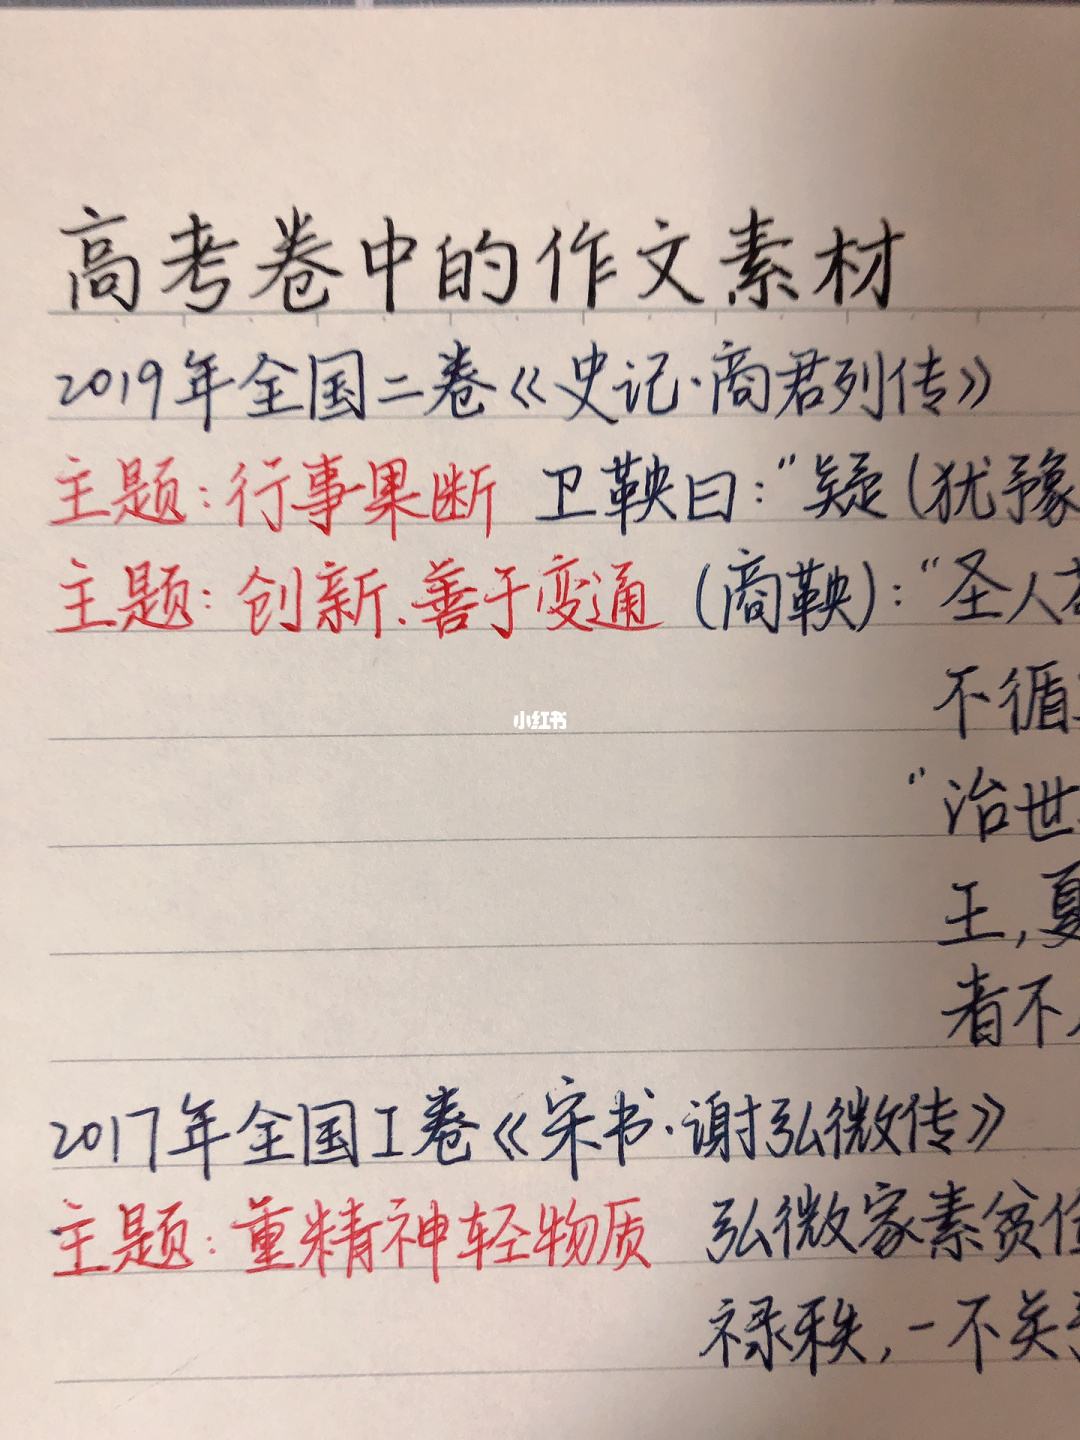 高考卷中的作文素材
2019年全国二卷《史记·商君列传》
主题：行事果断 卫鞅曰：“疑（犹豫
主题：创新、善于变通 （商鞅）：“圣人
不循
小红书
“治世
王，夏
者不
2017年全国I卷《宋书·谢弘微传》
主题：重精神轻物质 弘微家素贫
禄秩，一不关